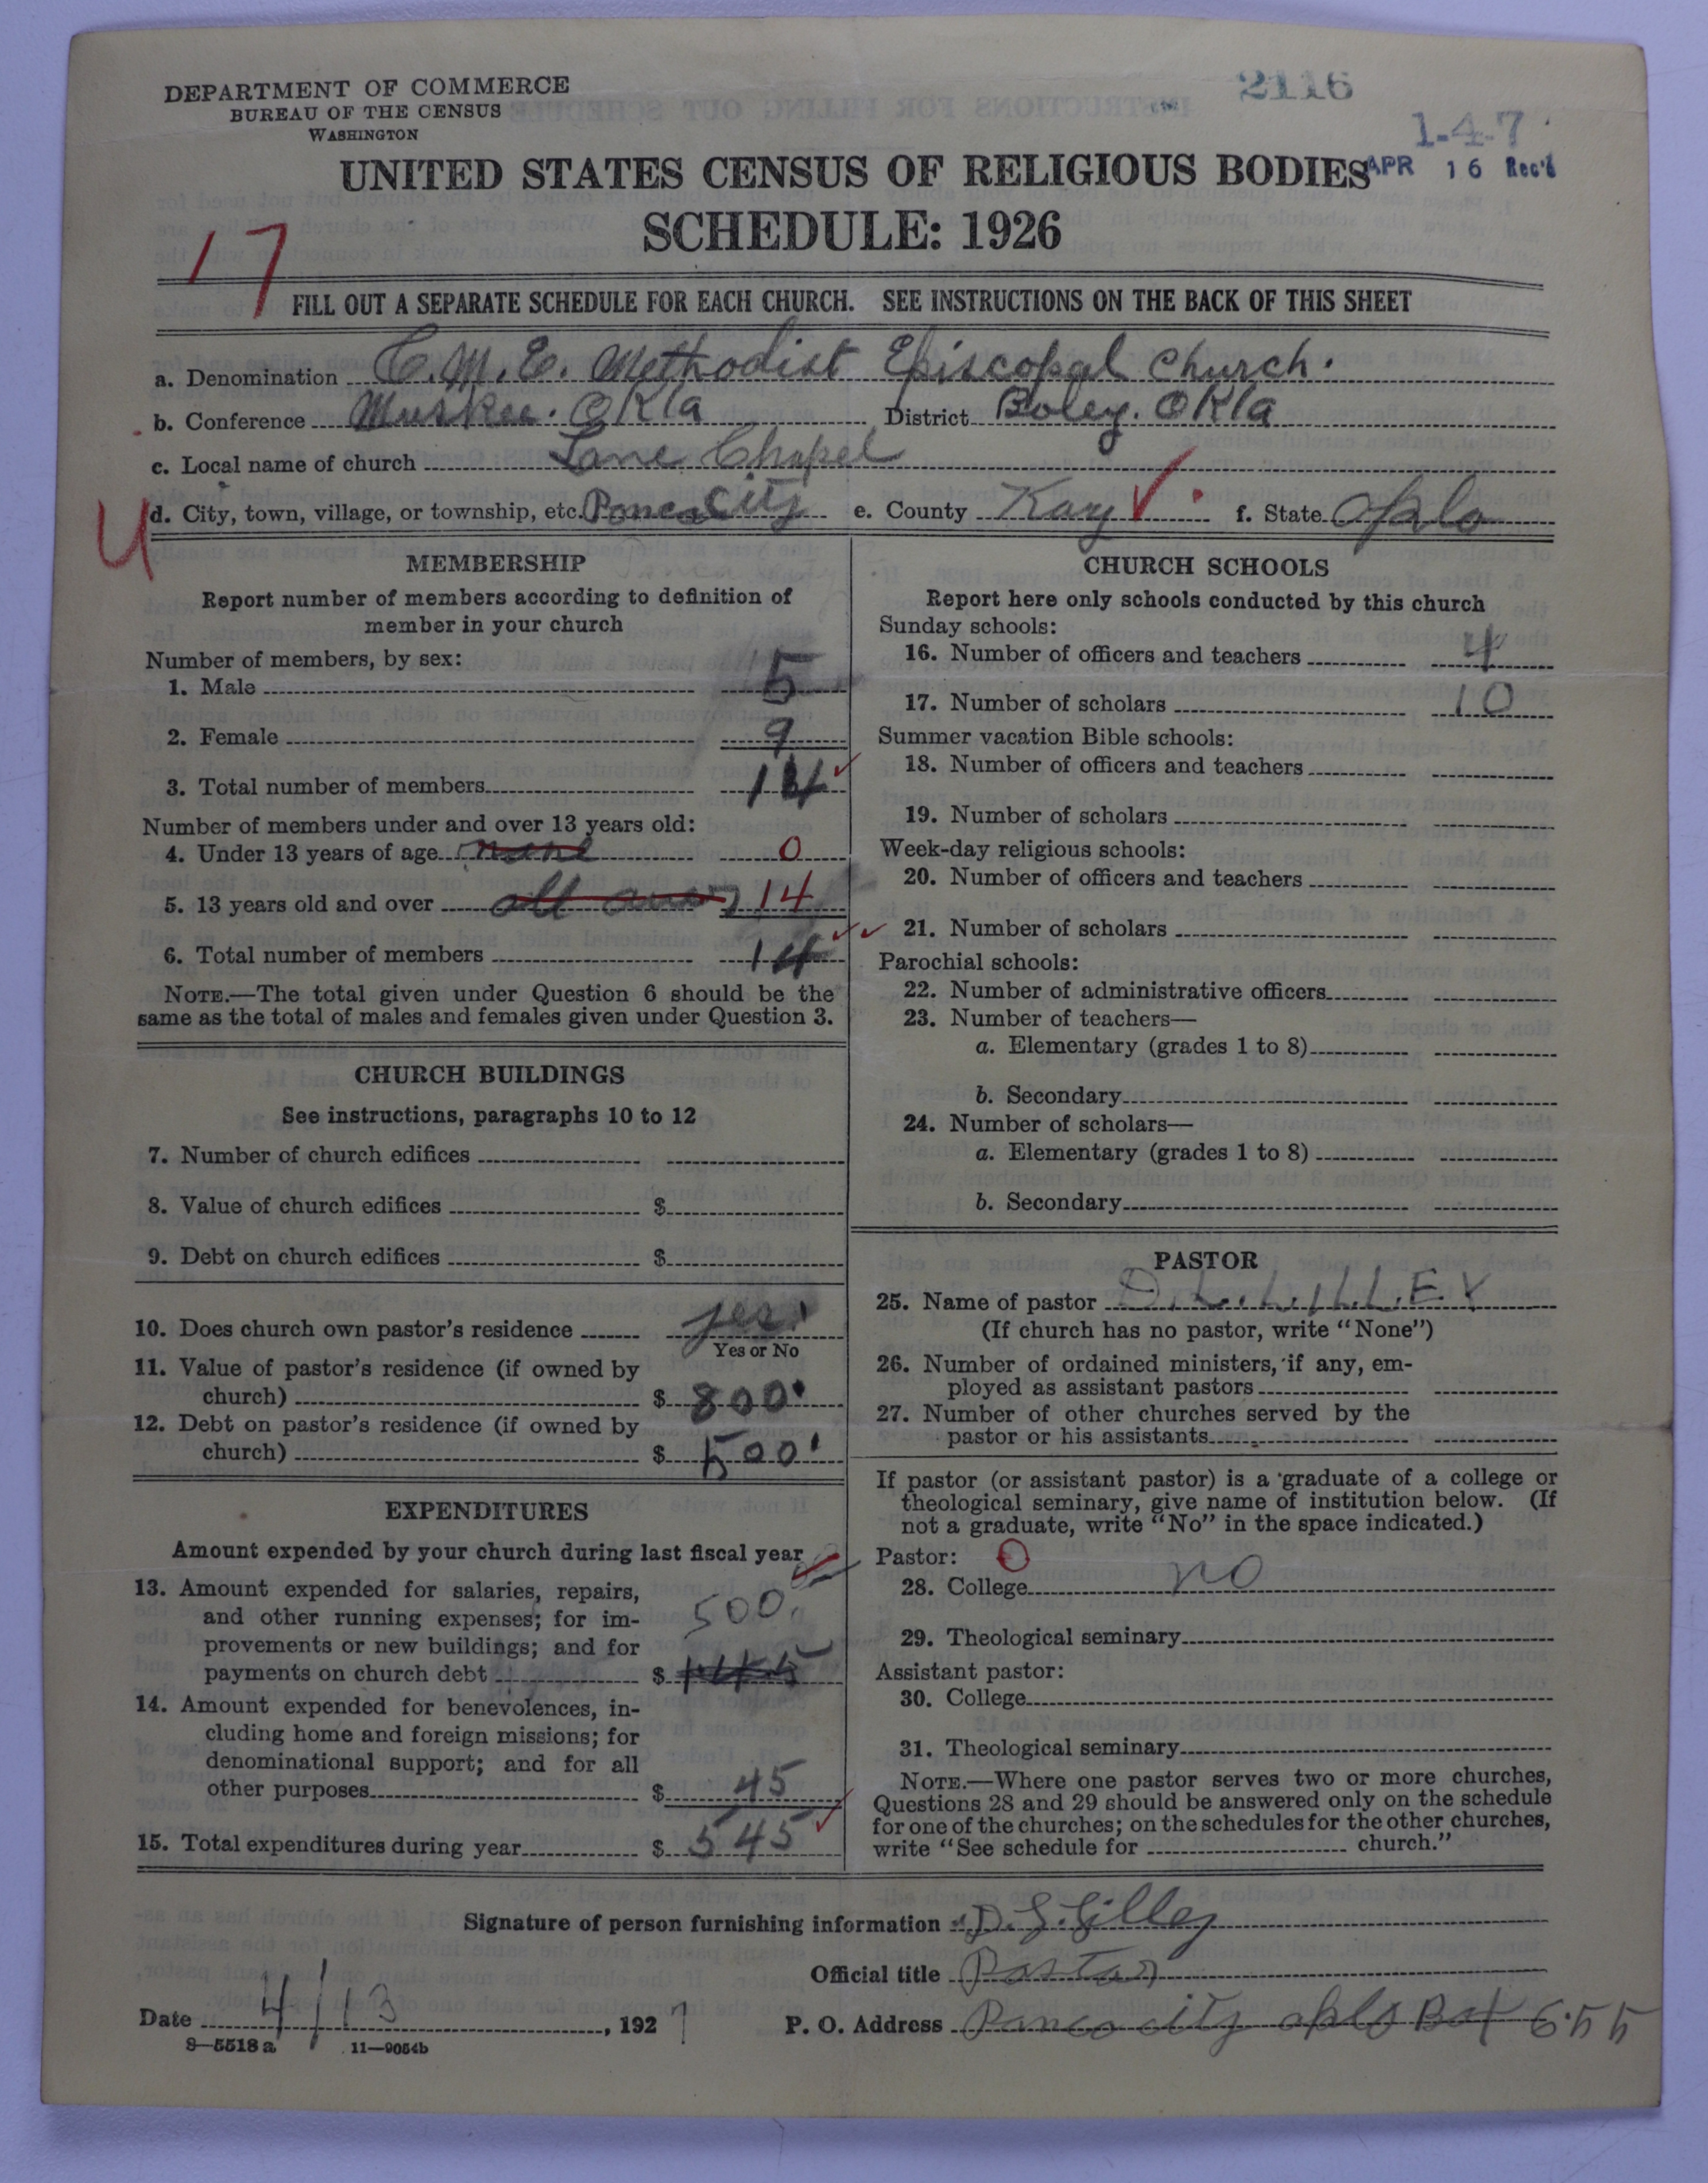 DEPARTMENT OF COMMERCE
BUREAU OF THE CENSUS
WASHINGTON
2116
1-4-7
APR 16 Rec'd
UNITED STATES CENSUS OF RELIGIOUS BODIES
SCHEDULE: 1926
17
FILL OUT A SEPARATE SCHEDULE FOR EACH CHURCH. SEE INSTRUCTIONS ON THE BACK OF THIS SHEET
a. Denomination C.M.E. Methodist Episcopal Church.
b. Conference Muskee. Okla District Boley. Okla
c. Local name of church Lane Chapel
U
d. City, town, village, or township, etc. Ponca City e. County Kay f. State Okla
MEMBERSHIP
Report number of members according to definition of
member in your church
Number of members, by sex:
1. Male 5
2. Female 9
3. Total number of members 14
Number of members under and over 13 years old:
4. Under 13 years of age none 0
5. 13 years old and over all over 14
6. Total number of members 14
NOTE.—The total given under Question 6 should be the
same as the total of males and females given under Question 3.
CHURCH BUILDINGS
See instructions, paragraphs 10 to 12
7. Number of church edifices
8. Value of church edifices $
9. Debt on church edifices $
10. Does church own pastor's residence yes.
Yes or No
11. Value of pastor's residence (if owned by
church) $ 800.
12. Debt on pastor's residence (if owned by
church) $ 500.
EXPENDITURES
Amount expended by your church during last fiscal year
13. Amount expended for salaries, repairs,
and other running expenses; for im-
provements or new buildings; and for
payments on church debt $ 500.
14. Amount expended for benevolences, in-
cluding home and foreign missions; for
denominational support; and for all
other purposes $ 45
15. Total expenditures during year $ 545
CHURCH SCHOOLS
Report here only schools conducted by this church
Sunday schools:
16. Number of officers and teachers 4
17. Number of scholars 10
Summer vacation Bible schools:
18. Number of officers and teachers
19. Number of scholars
Week-day religious schools:
20. Number of officers and teachers
21. Number of scholars
Parochial schools:
22. Number of administrative officers
23. Number of teachers—
a. Elementary (grades 1 to 8)
b. Secondary
24. Number of scholars—
a. Elementary (grades 1 to 8)
b. Secondary
PASTOR
25. Name of pastor D. L. LILLEY
(If church has no pastor, write "None")
26. Number of ordained ministers, if any, em-
ployed as assistant pastors
27. Number of other churches served by the
pastor or his assistants
If pastor (or assistant pastor) is a graduate of a college or
theological seminary, give name of institution below. (If
not a graduate, write "No" in the space indicated.)
Pastor: 0
28. College no
29. Theological seminary
Assistant pastor:
30. College
31. Theological seminary
NOTE.—Where one pastor serves two or more churches,
Questions 28 and 29 should be answered only on the schedule
for one of the churches; on the schedules for the other churches,
write "See schedule for church."
Signature of person furnishing information D. L. Lilley
Official title Pastor
Date 4/13, 1927 P. O. Address Ponca city okla Box 655
8—5518a 11—9054b